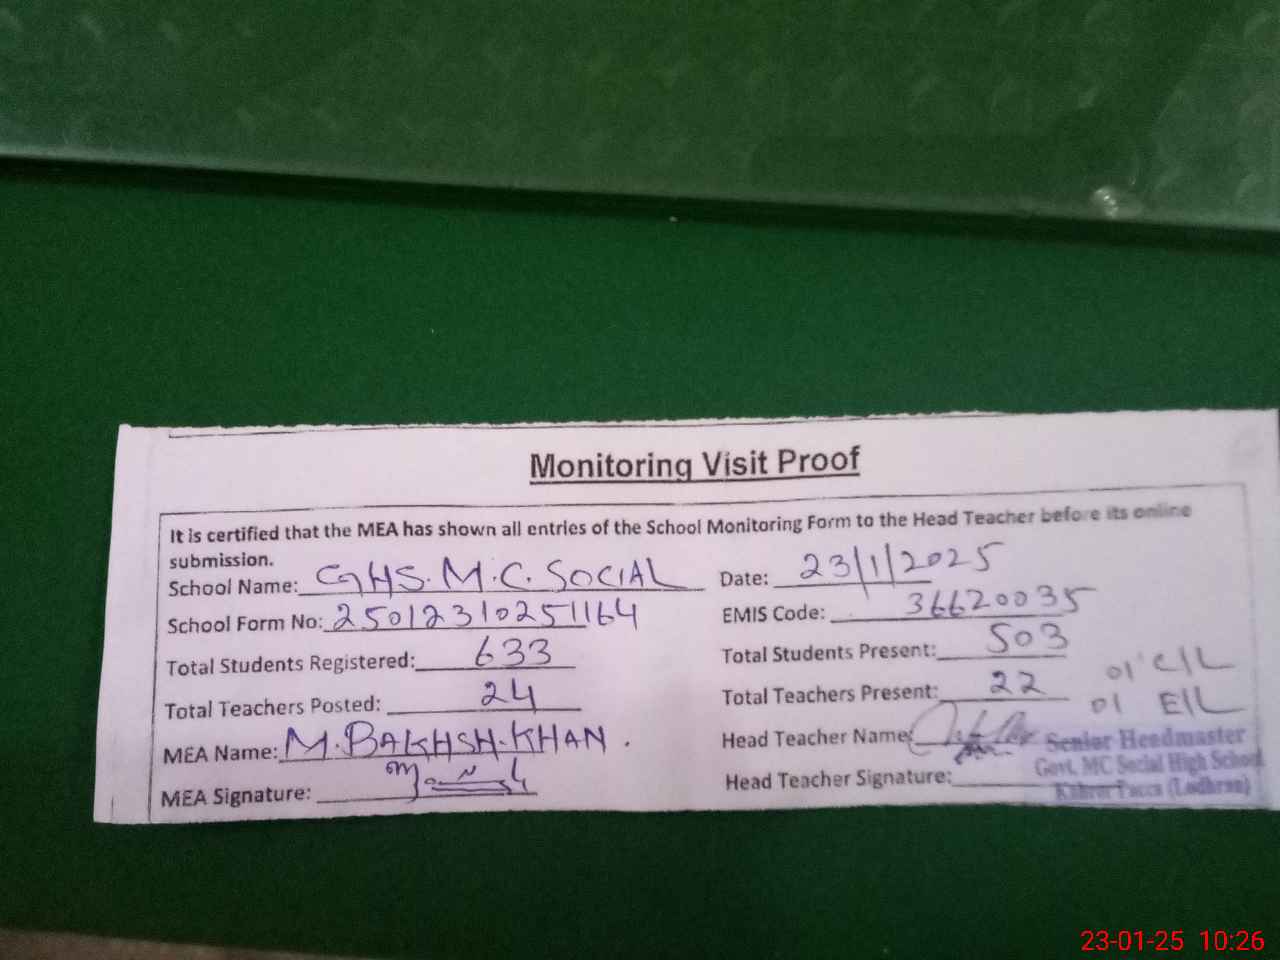 Monitoring Visit Proof
It is certified that the MEA has shown all entries of the School Monitoring Form to the Head Teacher before its online
submission.
School Name: GHS. M.C. SOCIAL Date: 23/1/2025
School Form No: 25012310251164 EMIS Code: 36620035
Total Students Registered: 633 Total Students Present: 503
01 C/L
Total Teachers Posted: 24 Total Teachers Present: 22
01 E/L
MEA Name: M. BAKHSH. KHAN. Head Teacher Name:
Senior Headmaster
Govt. MC Social High School
Kahror Pacca (Lodhran)
MEA Signature: Head Teacher Signature:
23-01-25 10:26